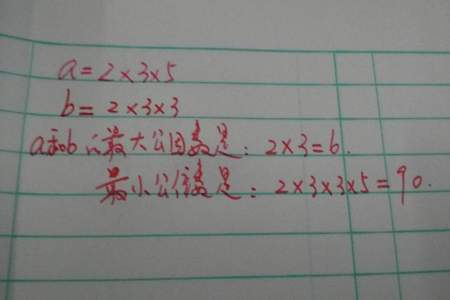 a=2×3×5
b=2×3×3
a和b的最大公因数是：2×3=6.
最小公倍数是：2×3×3×5=90.